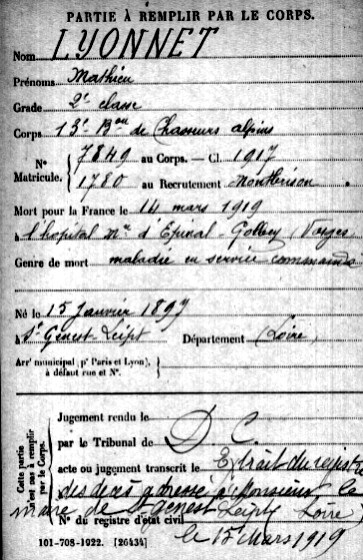 PARTIE À REMPLIR PAR LE CORPS.
Nom LYONNET
Prénoms Mathieu
Grade 2e classe
Corps 13e Bon de Chasseurs alpins
No Matricule. 7849 au Corps. — Cl. 1917
1780 au Recrutement Montbrison
Mort pour la France le 14 mars 1919
à l'hopital mre d'Epinal - Golbey (Vosges
Genre de mort maladie en service commandé
Né le 15 Janvier 1897
à St Genest-Lerpt Département (Loire)
Arrt municipal (pr Paris et Lyon),
à défaut rue et No.
Cette partie n'est pas à remplir par le Corps.
Jugement rendu le
par le Tribunal de D. C.
acte ou jugement transcrit le Extrait du registre
des décès adressé à Monsieur le
maire de St Genest Lerpt (Loire)
No du registre d'état civil
le 15 Mars 1919
101-708-1922. [26434]